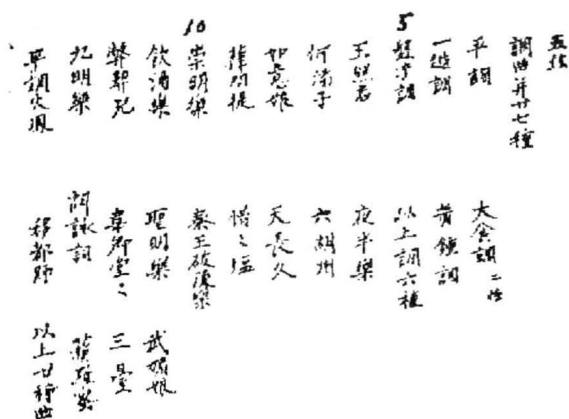 五弦
調曲并廿七種
平調 大食調
一越調 黃鐘調
5
盤涉調 以上調六種
王昭君 夜半樂
何滿子 六胡州
如意娘 天長久
惜〻塩
10
崇明樂 秦王破陣樂
飲酒樂 聖明樂 武媚娘
弊契兒 韋卿堂〻 三臺
九明樂 詠詞
平調火鳳 移都師 以上廿種曲